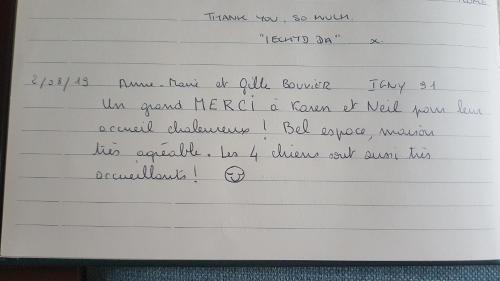 THANK YOU, SO MUCH.
"IECHYD DA" x.
2/08/19 Anne-Marie et Gille BOUVIER IGNY 91
Un grand MERCI à Karen et Neil pour leur
accueil chaleureux ! Bel espace, maison
très agréable. Les 4 chiens sont aussi très
accueillants !